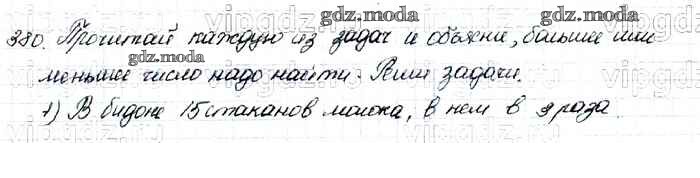 gdz.moda
380. Прочитай каждую из задач и объясни, больше или
меньшее число надо найти. Реши задачи.
1) В бидоне 15 стаканов молока, в нем в 3 раза